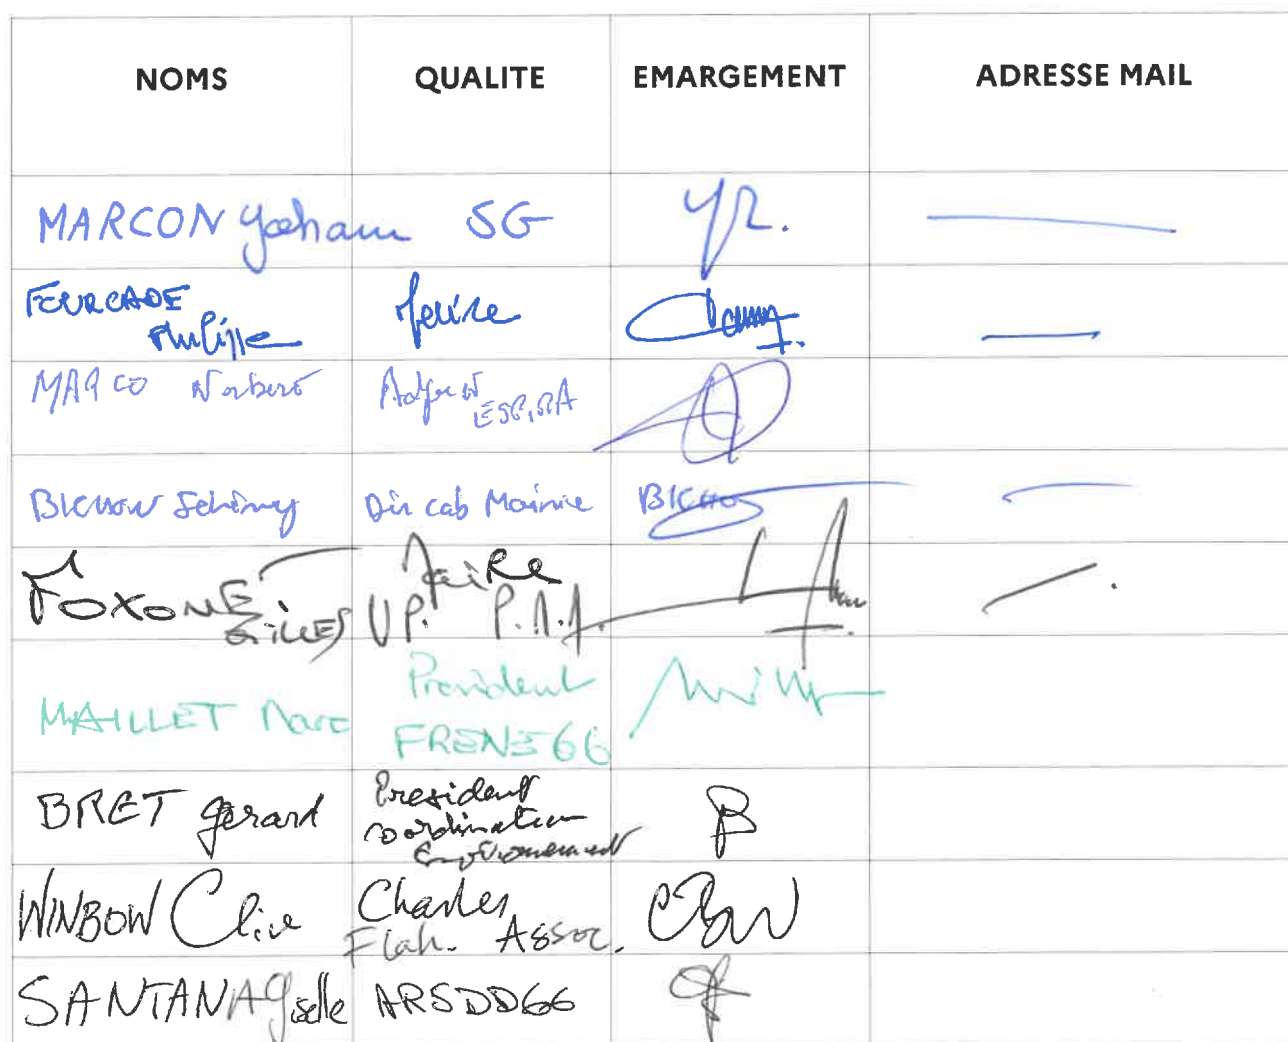 NOMS QUALITE EMARGEMENT ADRESSE MAIL
MARCON Yoeham SG YR.
FOURCADE
Philippe Maire
MARCO Norbert Adjoint
ESPIRA
BICHON Jérémy Dir cab Mairie BICHON
FOXONET
GILLES Maire
VP. P.M.M.
MAILLET Marc Président
FRENE 66
BRET Gérard President
coordination
Environnement B
WINBOW Clive Charles
Flah. Assoc. CBW
SANTANA Giselle ARSDD66